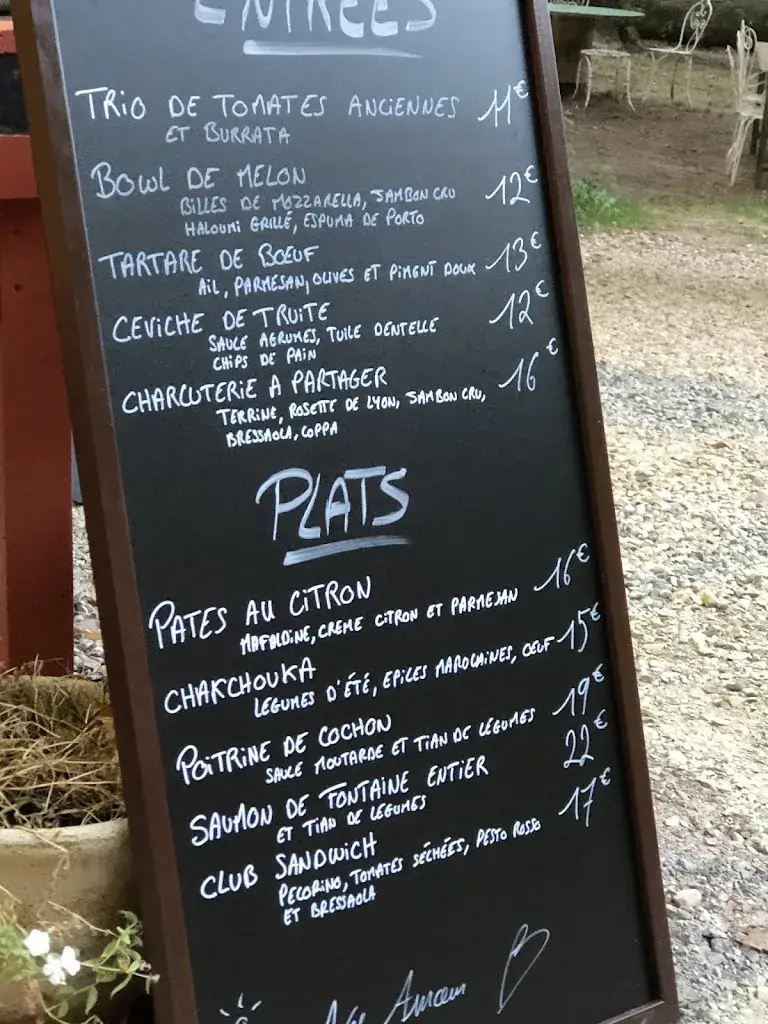 ENTRÉES
TRIO DE TOMATES ANCIENNES 11€
ET BURRATA
BOWL DE MELON 12€
BILLES DE MOZZARELLA, JAMBON CRU
HALOUMI GRILLÉ, ESPUMA DE PORTO
TARTARE DE BŒUF 13€
AIL, PARMESAN, OLIVES ET PIMENT DOUX
CEVICHE DE TRUITE 12€
SAUCE AGRUMES, TUILE DENTELLE
CHIPS DE PAIN
CHARCUTERIE A PARTAGER 16€
TERRINE, ROSETTE DE LYON, JAMBON CRU,
BRESSAOLA, COPPA
PLATS
PATES AU CITRON 16€
MAFALDINE, CREME CITRON ET PARMESAN
CHAKCHOUKA 15€
LEGUMES D'ÉTÉ, EPICES MAROCAINES, OEUF
POITRINE DE COCHON 19€
SAUCE MOUTARDE ET TIAN DE LEGUMES
SAUMON DE FONTAINE ENTIER 22€
ET TIAN DE LEGUMES
CLUB SANDWICH 17€
PECORINO, TOMATES SÉCHÉES, PESTO ROSSO
ET BRESSAOLA